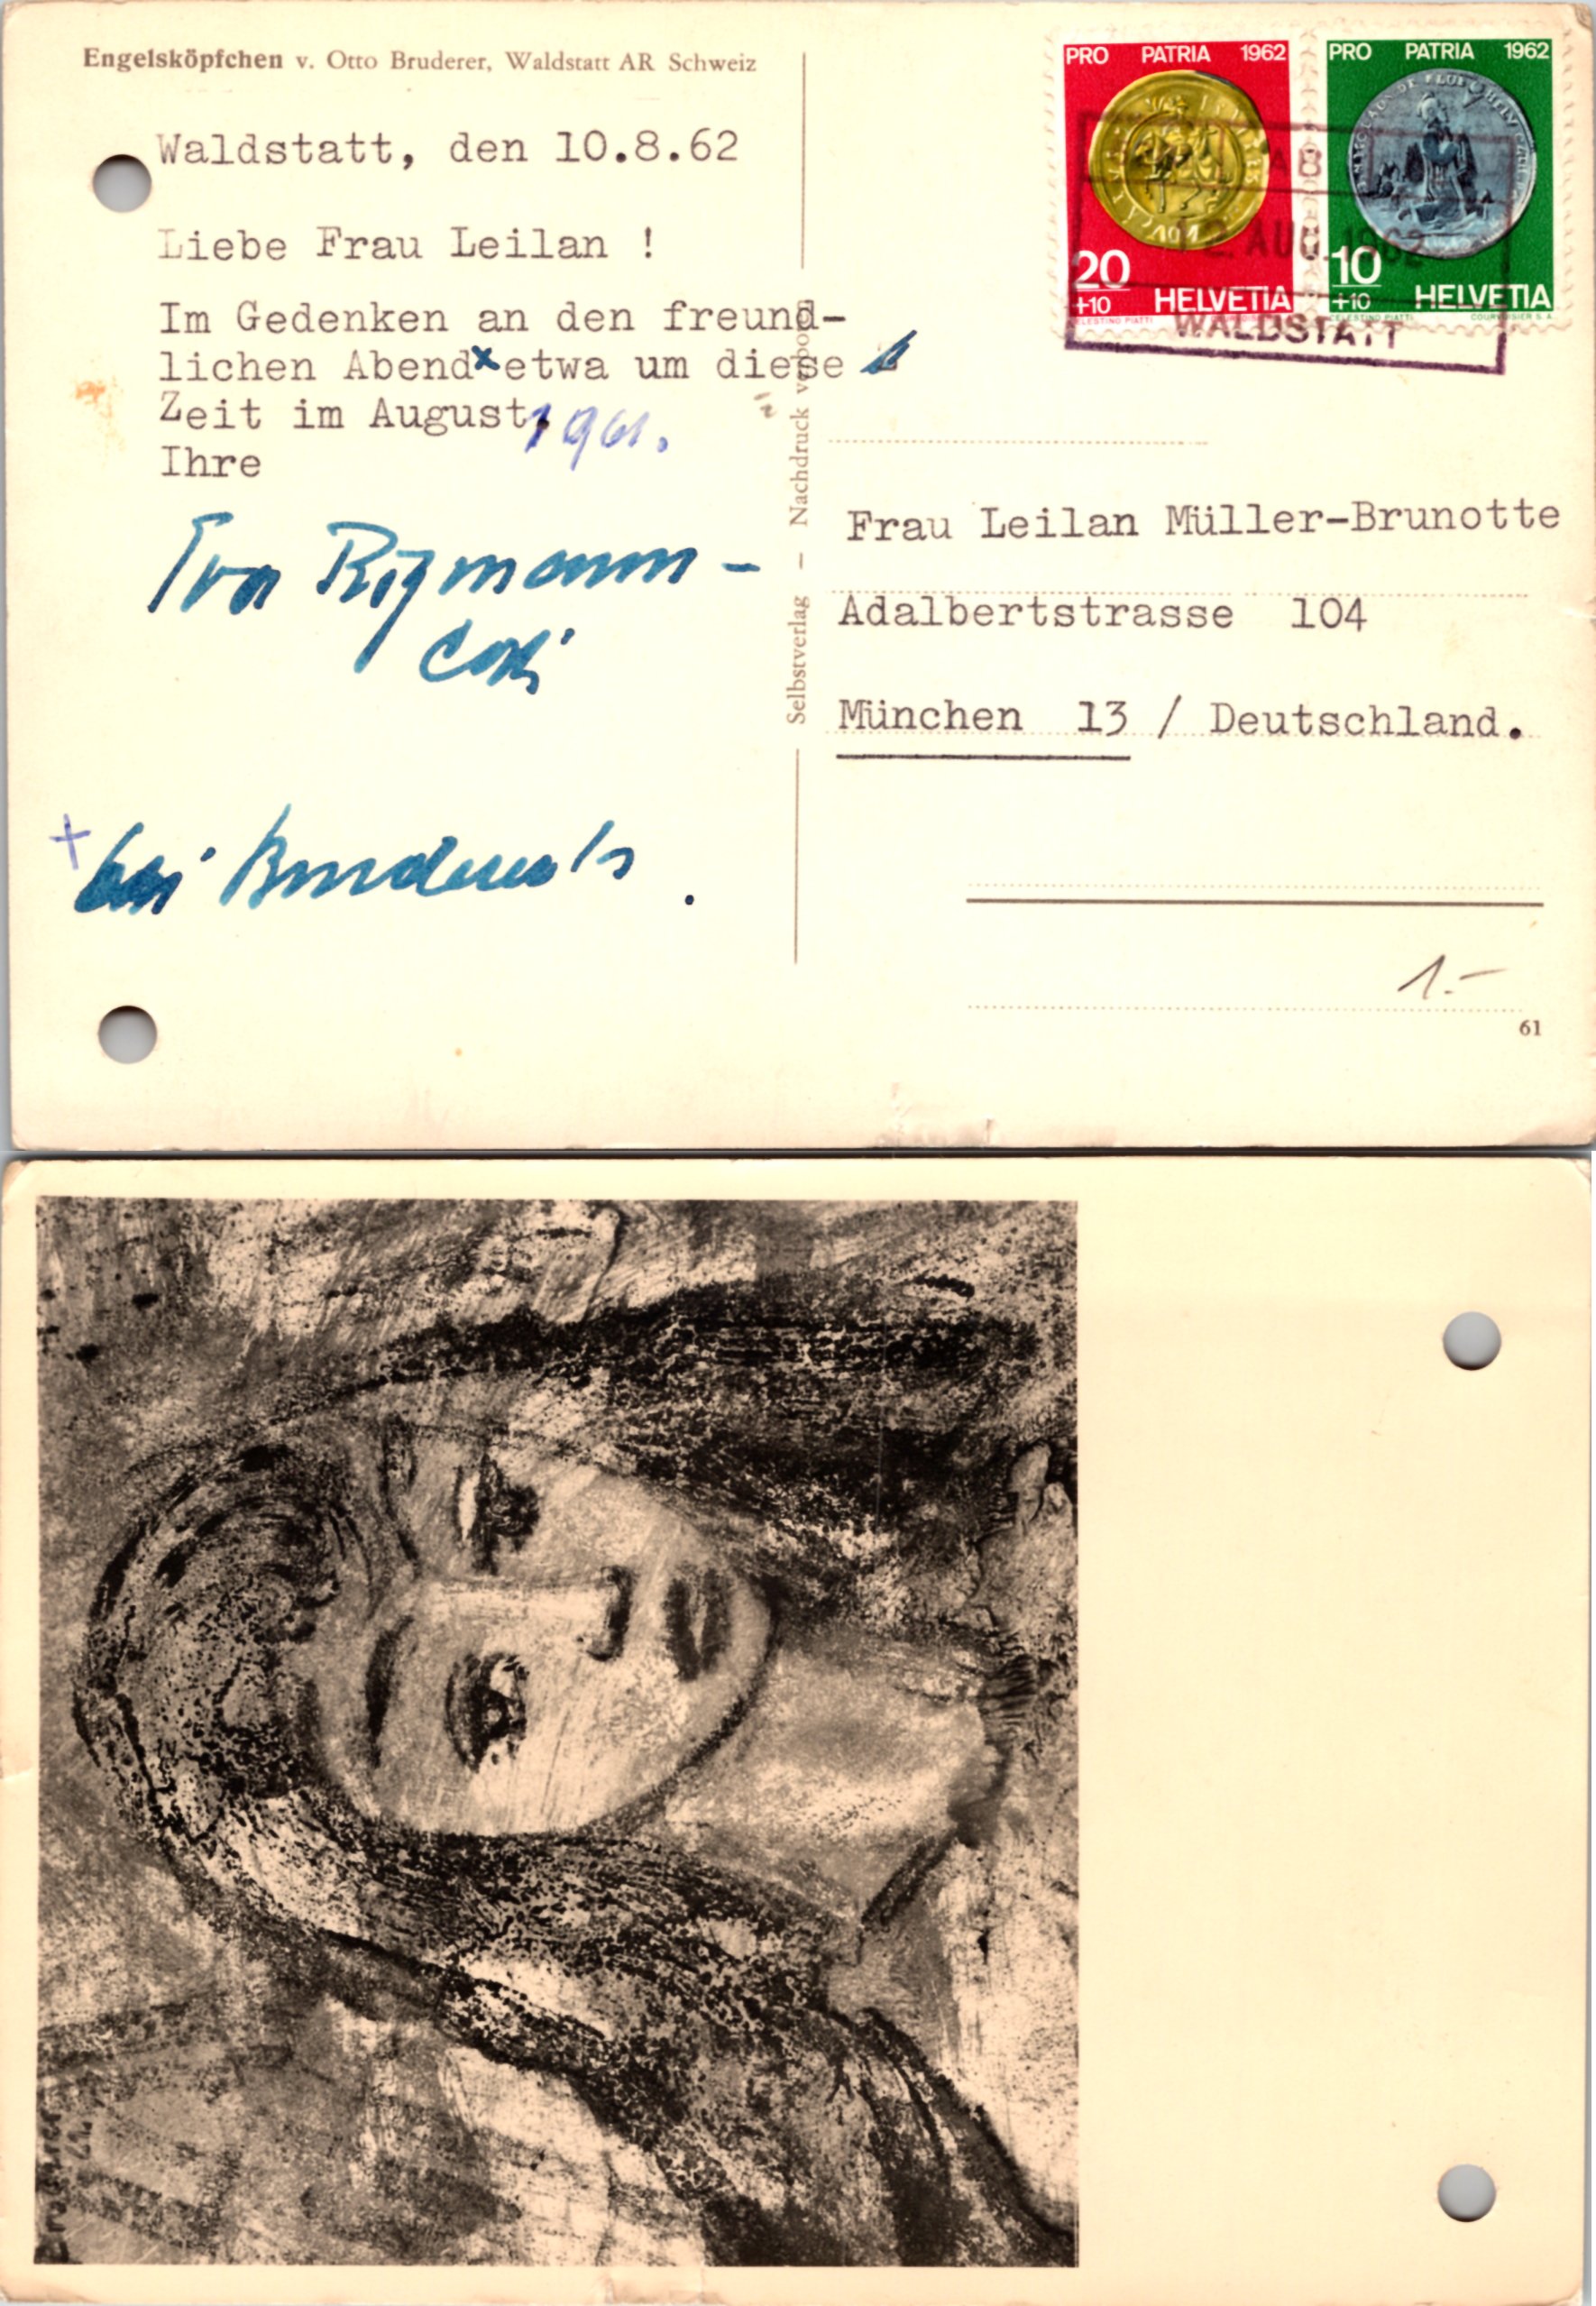 Engelsköpfchen v. Otto Bruderer, Waldstatt AR Schweiz
Waldstatt, den 10.8.62
Liebe Frau Leilan !
Im Gedenken an den freund-
lichen Abend x etwa um diese
Zeit im August, 1961.
Ihre
Eva
+ bei Bruderer's.
Selbstverlag – Nachdruck verboten
PRO PATRIA 1962
20
+10 HELVETIA
PRO PATRIA 1962
10
+10 HELVETIA
CELESTINO PIATTI COURVOISIER S.A.
12 AUG. 1962
WALDSTATT
Frau Leilan Müller-Brunotte
Adalbertstrasse 104
München 13 / Deutschland.
1.-
61
Bruderer